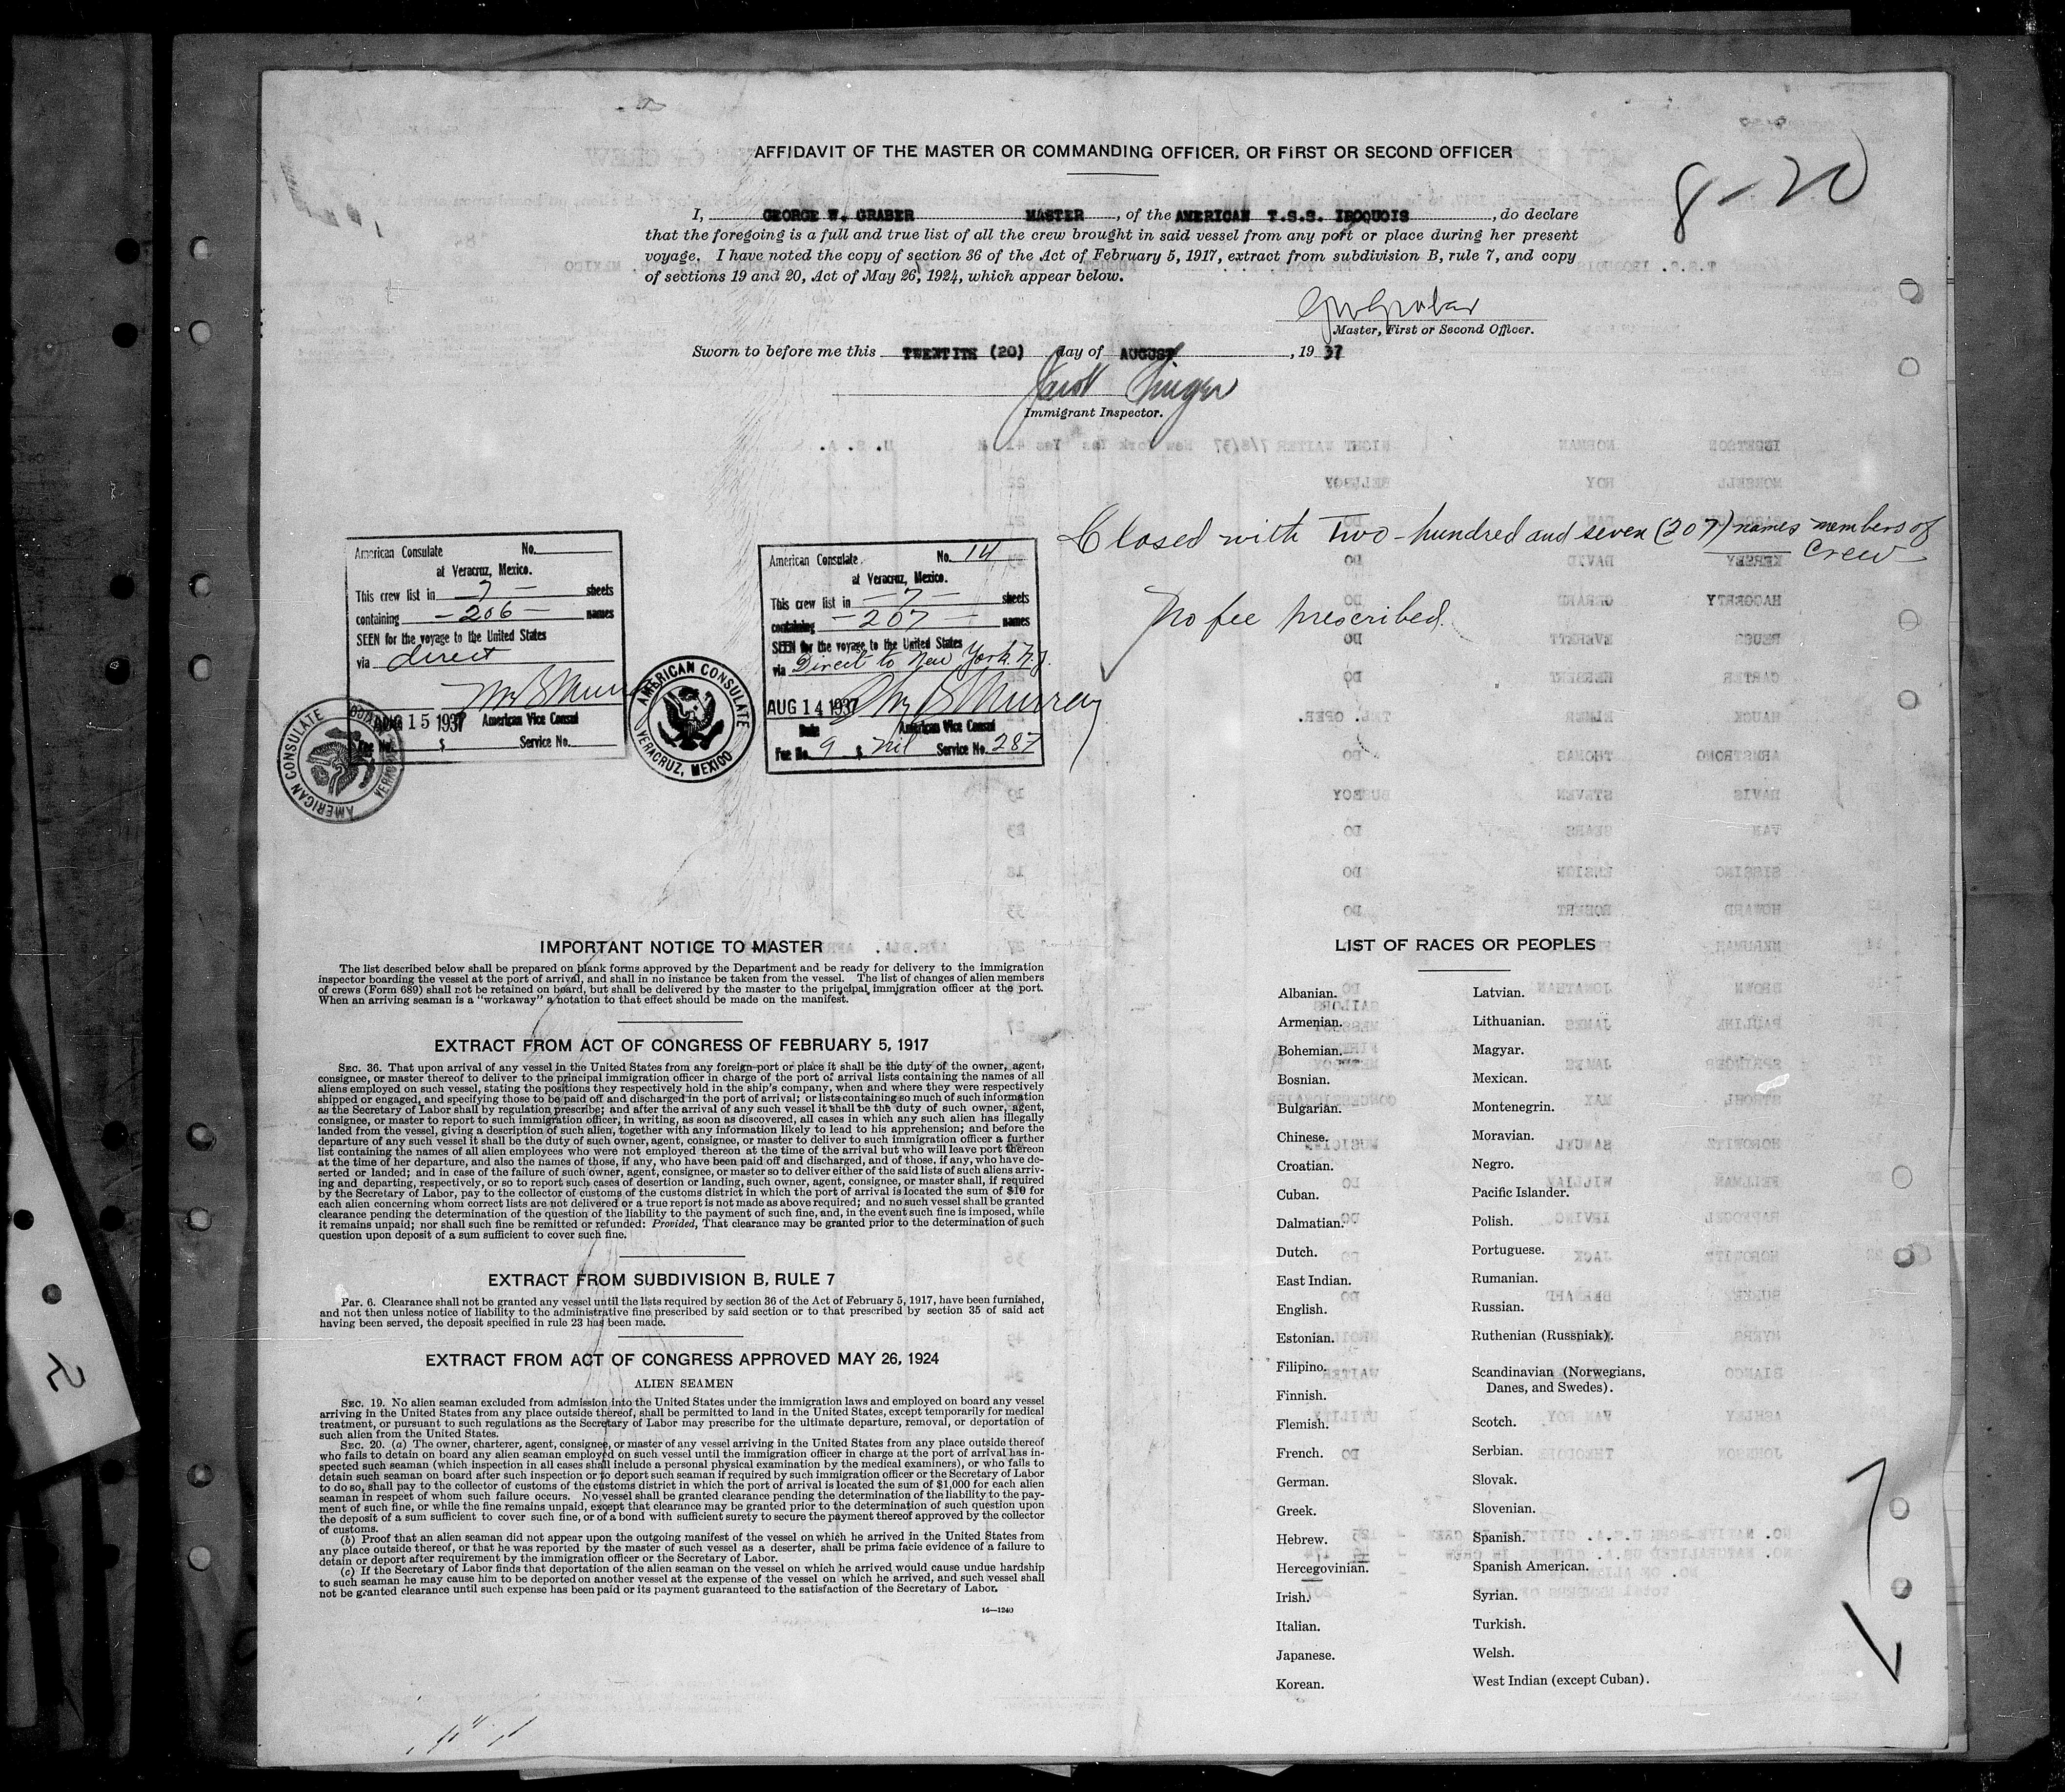 AFFIDAVIT OF THE MASTER OR COMMANDING OFFICER, OR FIRST OR SECOND OFFICER
8-20
I, GEORGE W. GRABER MASTER, of the AMERICAN T.S.S. IROQUOIS, do declare
that the foregoing is a full and true list of all the crew brought in said vessel from any port or place during her present
voyage. I have noted the copy of section 36 of the Act of February 5, 1917, extract from subdivision B, rule 7, and copy
of sections 19 and 20, Act of May 26, 1924, which appear below.
GW Graber
Master, First or Second Officer.
Sworn to before me this TWENTITH (20) day of AUGUST, 19 37
Immigrant Inspector.
Closed with Two-hundred and seven (207) names members of
crew
No fee prescribed.
American Consulate No.
at Veracruz, Mexico.
This crew list in - 7 - sheets
containing - 206 - names
SEEN for the voyage to the United States
via direct
AUG 15 1937 American Vice Consul
Fee No. $ Service No.
AMERICAN CONSULATE
AMERICAN CONSULATE
VERACRUZ, MEXICO
American Consulate No. 14
at Veracruz, Mexico.
This crew list in - 7 - sheets
containing - 207 - names
SEEN for the voyage to the United States
via Direct to New York. N.Y.
Murray
AUG 14 1937
Date American Vice Consul
Fee No. 9 $ nil Service No. 287
IMPORTANT NOTICE TO MASTER
The list described below shall be prepared on blank forms approved by the Department and be ready for delivery to the immigration
inspector boarding the vessel at the port of arrival, and shall in no instance be taken from the vessel. The list of changes of alien members
of crews (Form 689) shall not be retained on board, but shall be delivered by the master to the principal immigration officer at the port.
When an arriving seaman is a "workaway" a notation to that effect should be made on the manifest.
EXTRACT FROM ACT OF CONGRESS OF FEBRUARY 5, 1917
SEC. 36. That upon arrival of any vessel in the United States from any foreign port or place it shall be the duty of the owner, agent,
consignee, or master thereof to deliver to the principal immigration officer in charge of the port of arrival lists containing the names of all
aliens employed on such vessel, stating the positions they respectively hold in the ship's company, when and where they were respectively
shipped or engaged, and specifying those to be paid off and discharged in the port of arrival; or lists containing so much of such information
as the Secretary of Labor shall by regulation prescribe; and after the arrival of any such vessel it shall be the duty of such owner, agent,
consignee, or master to report to such immigration officer, in writing, as soon as discovered, all cases in which any such alien has illegally
landed from the vessel, giving a description of such alien, together with any information likely to lead to his apprehension; and before the
departure of any such vessel it shall be the duty of such owner, agent, consignee, or master to deliver to such immigration officer a further
list containing the names of all alien employees who were not employed thereon at the time of the arrival but who will leave port thereon
at the time of her departure, and also the names of those, if any, who have been paid off and discharged, and of those. if any, who have de-
serted or landed; and in case of the failure of such owner, agent, consignee, or master so to deliver either of the said lists of such aliens arriv-
ing and departing, respectively, or so to report such cases of desertion or landing, such owner, agent, consignee, or master shall, if required
by the Secretary of Labor, pay to the collector of customs of the customs district in which the port of arrival is located the sum of $10 for
each alien concerning whom correct lists are not delivered or a true report is not made as above required; and no such vessel shall be granted
clearance pending the determination of the question of the liability to the payment of such fine, and, in the event such fine is imposed, while
it remains unpaid; nor shall such fine be remitted or refunded: Provided, That clearance may be granted prior to the determination of such
question upon deposit of a sum sufficient to cover such fine.
EXTRACT FROM SUBDIVISION B, RULE 7
Par. 6. Clearance shall not be granted any vessel until the lists required by section 36 of the Act of February 5, 1917, have been furnished,
and not then unless notice of liability to the administrative fine prescribed by said section or to that prescribed by section 35 of said act
having been served, the deposit specified in rule 23 has been made.
EXTRACT FROM ACT OF CONGRESS APPROVED MAY 26, 1924
ALIEN SEAMEN
SEC. 19. No alien seaman excluded from admission into the United States under the immigration laws and employed on board any vessel
arriving in the United States from any place outside thereof, shall be permitted to land in the United States, except temporarily for medical
treatment, or pursuant to such regulations as the Secretary of Labor may prescribe for the ultimate departure, removal, or deportation of
such alien from the United States.
SEC. 20. (a) The owner, charterer, agent, consignee, or master of any vessel arriving in the United States from any place outside thereof
who fails to detain on board any alien seaman employed on such vessel until the immigration officer in charge at the port of arrival has in-
spected such seaman (which inspection in all cases shall include a personal physical examination by the medical examiners), or who fails to
detain such seaman on board after such inspection or to deport such seaman if required by such immigration officer or the Secretary of Labor
to do so, shall pay to the collector of customs of the customs district in which the port of arrival is located the sum of $1,000 for each alien
seaman in respect of whom such failure occurs. No vessel shall be granted clearance pending the determination of the liability to the pay-
ment of such fine, or while the fine remains unpaid, except that clearance may be granted prior to the determination of such question upon
the deposit of a sum sufficient to cover such fine, or of a bond with sufficient surety to secure the payment thereof approved by the collector
of customs.
(b) Proof that an alien seaman did not appear upon the outgoing manifest of the vessel on which he arrived in the United States from
any place outside thereof, or that he was reported by the master of such vessel as a deserter, shall be prima facie evidence of a failure to
detain or deport after requirement by the immigration officer or the Secretary of Labor.
(c) If the Secretary of Labor finds that deportation of the alien seaman on the vessel on which he arrived would cause undue hardship
to such seaman he may cause him to be deported on another vessel at the expense of the vessel on which he arrived, and such vessel shall
not be granted clearance until such expense has been paid or its payment guaranteed to the satisfaction of the Secretary of Labor.
14—1240
LIST OF RACES OR PEOPLES
Albanian.
Armenian.
Bohemian.
Bosnian.
Bulgarian.
Chinese.
Croatian.
Cuban.
Dalmatian.
Dutch.
East Indian.
English.
Estonian.
Filipino.
Finnish.
Flemish.
French.
German.
Greek.
Hebrew.
Hercegovinian.
Irish.
Italian.
Japanese.
Korean.
Latvian.
Lithuanian.
Magyar.
Mexican.
Montenegrin.
Moravian.
Negro.
Pacific Islander.
Polish.
Portuguese.
Rumanian.
Russian.
Ruthenian (Russniak).
Scandinavian (Norwegians,
Danes, and Swedes).
Scotch.
Serbian.
Slovak.
Slovenian.
Spanish.
Spanish American.
Syrian.
Turkish.
Welsh.
West Indian (except Cuban).